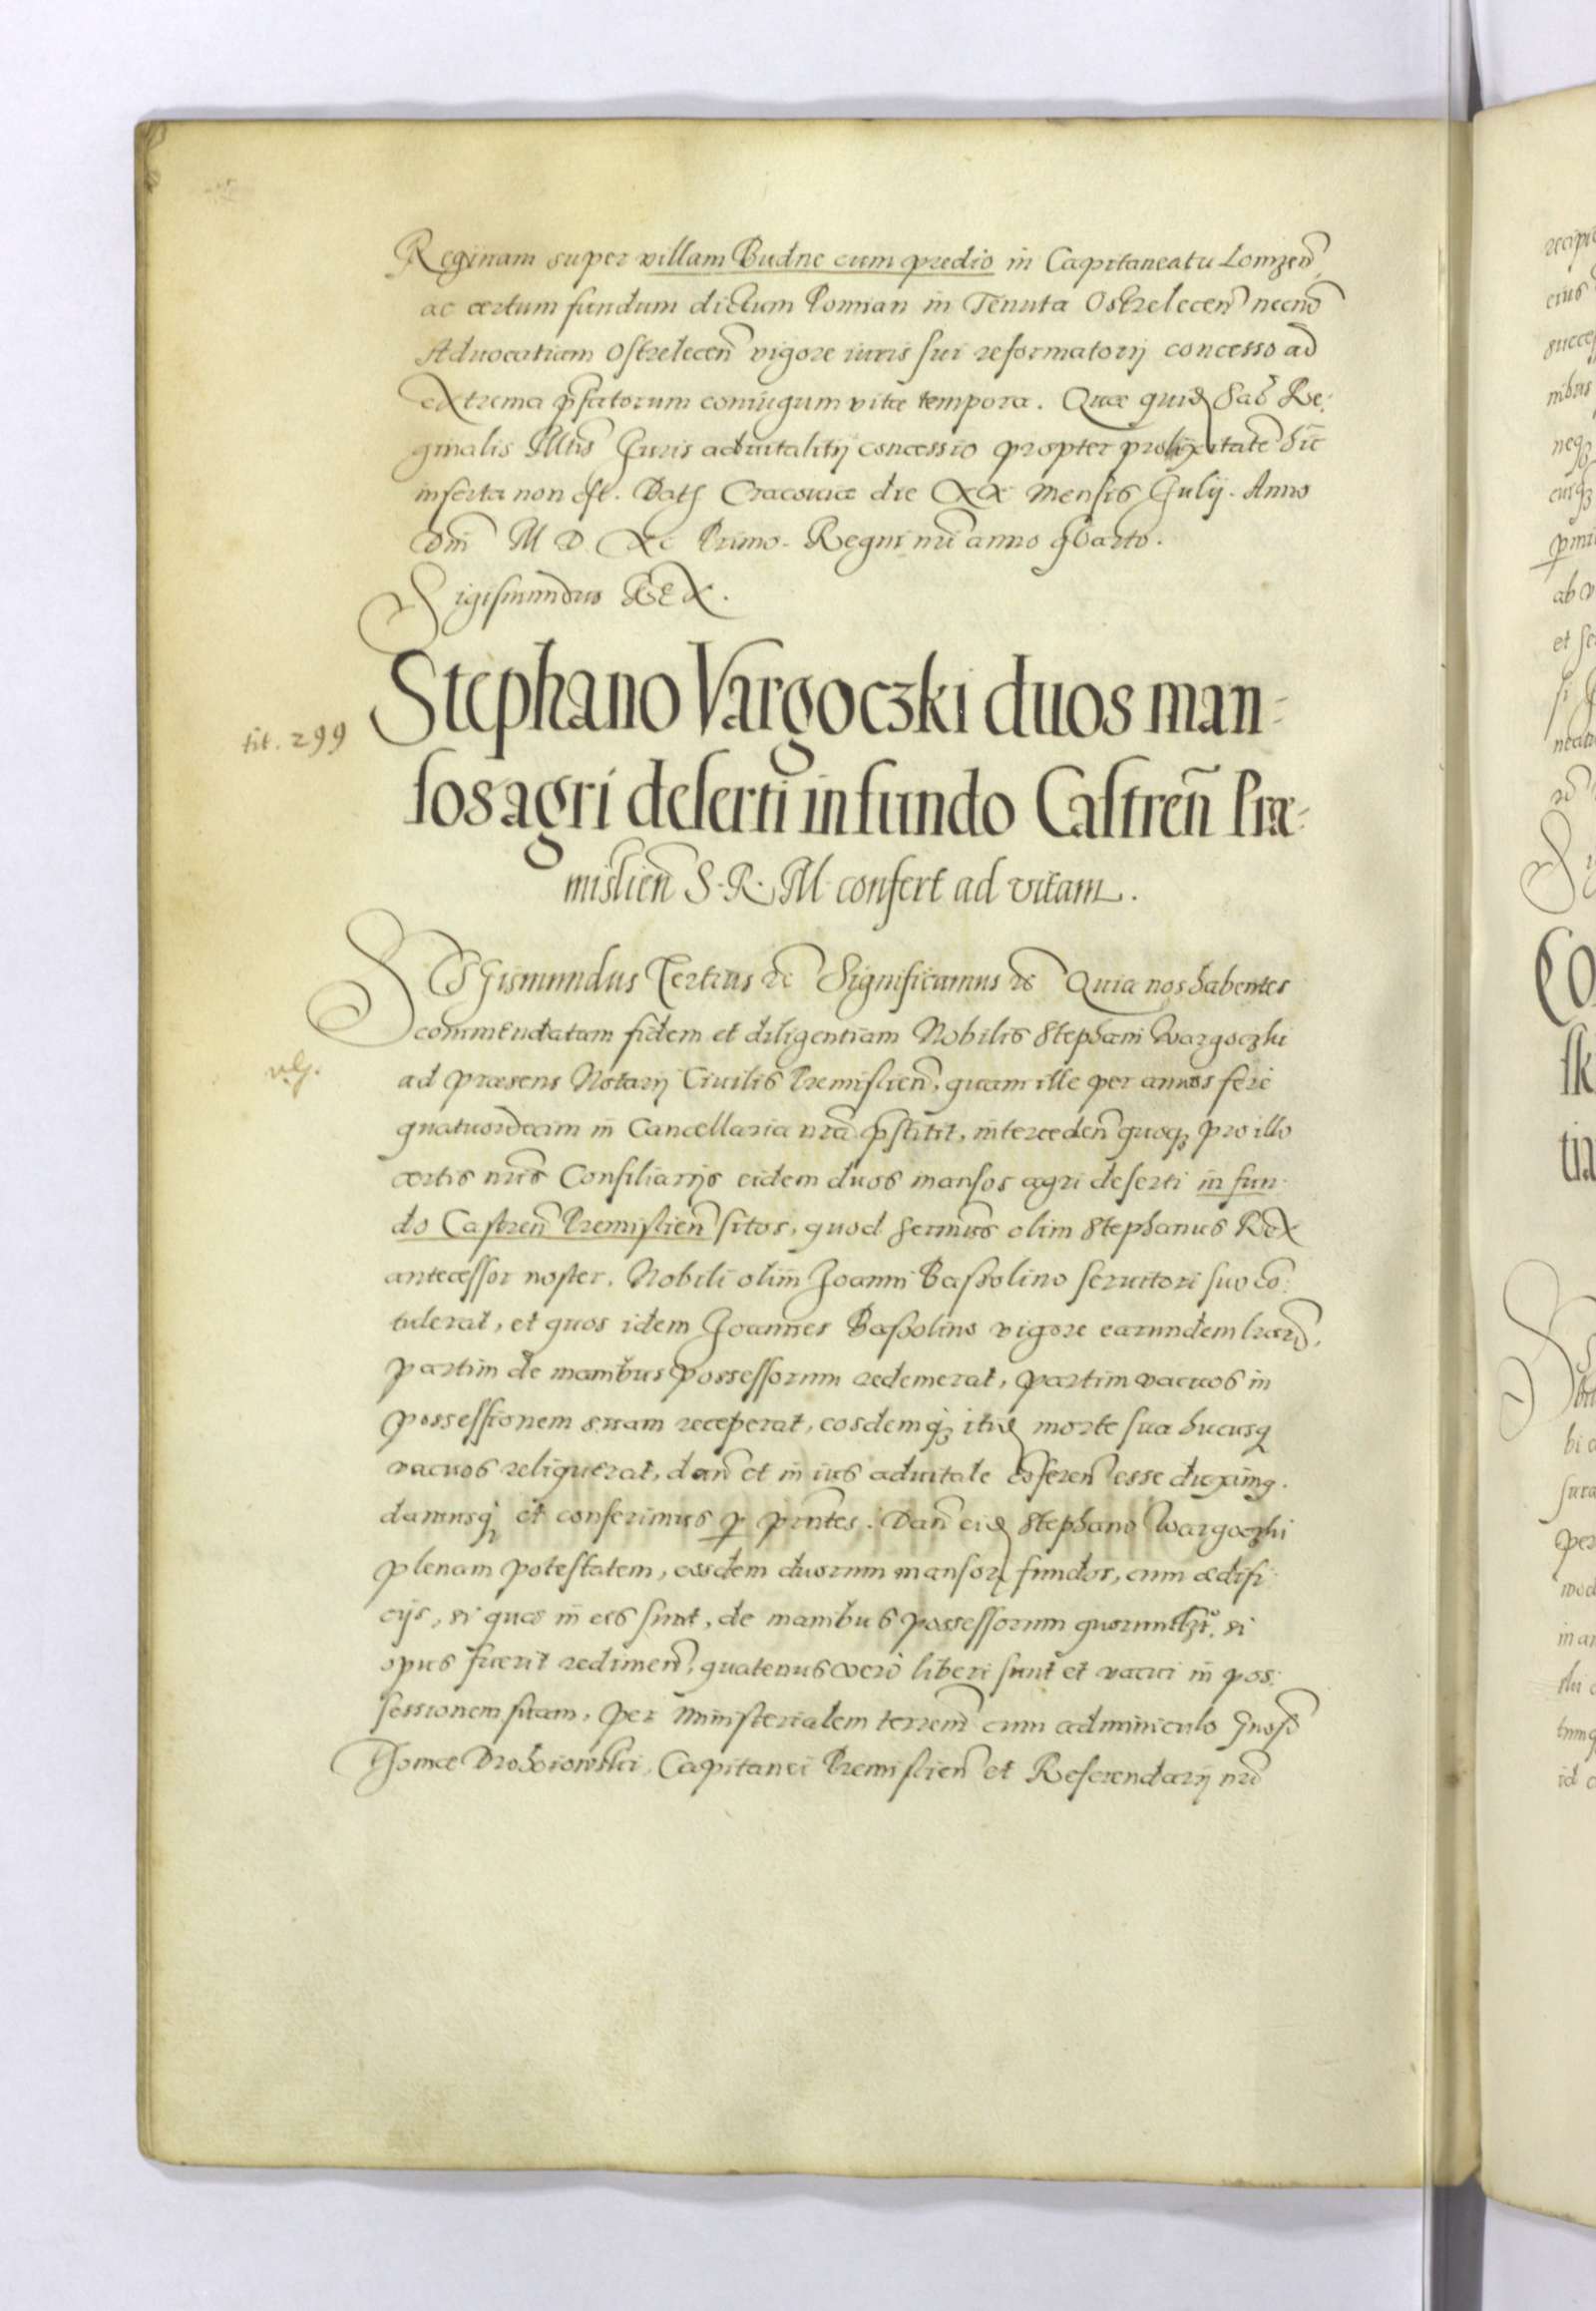 Reginam super villam Budne cum predio in Capitaneatu Lomzeñ
ac certum fundum dictum Pomian in Tenuta Ostreleceñ necnõ
Advocatiam Ostrelecen̄ vigore iuris sui reformatorij concesso ad
extrema p̄fatorum coniugum vitæ tempora. Quæ quid Sac̃ Re-
ginalis M̃ttis Juris advitalitij concessio propter prolixitatē hic
inserta non est. Dat Cracoviæ die XX Mensis Julij. Anno
Dñi M D XC Primo. Regni nr̃i anno qvarto.
Sigismundus REX.
tit. 299
Stephano Vargoczki duos man-
sos agri deserti in fundo Castreñ Præ-
misliēn S. R. M. confert ad vitam.
Sigismundus Tertius etc̃ Significamus etc̃ Quia nos habentes
commendatam fidem et diligentiam Nobilis Stephani Wargoczki
ad præsens Notarij Civilis Premislieñ, quam ille per annos ferè
quatuordecim in Cancellaria nr̃a p̄stitit, intercedeñ quoq₃ pro illo
certis nr̃is Consiliarijs eidem duos mansos agri deserti in fun-
do Castreñ Premislieñ sitos, quod Serm̃us olim Stephanus Rex
antecessor noster, Nobili olim Joanni Bassolino servitori suo cõ-
tulerat, et quos idem Joannes Bassolino vigore earundem lrarũ,
partim de manibus possessorum redemerat, partim vacuos in
possessionem suam receperat, eosdemq₃ itid morte sua hucusq
vacuos reliquerat, dañ et in ius advitale cõfereñ esse duximq.
damusq₃ et conferimus p prn̄tes. Dañ eid Stephano Wargoczki
plenam potestatem, eosdem duorum mansor fundos, cum ædifi-
cijs, si quæ in eis sunt, de manibus possessorum quorumlibt̃, si
opus fuerit redimeñ, quatenus verò liberi sunt et vacui in pos-
sessionem suam, per Ministerialem terreñ cum adminiculo Gñosi
Thomæ Drohoiowski, Capitanei Premislieñ et Referendarij nr̃i